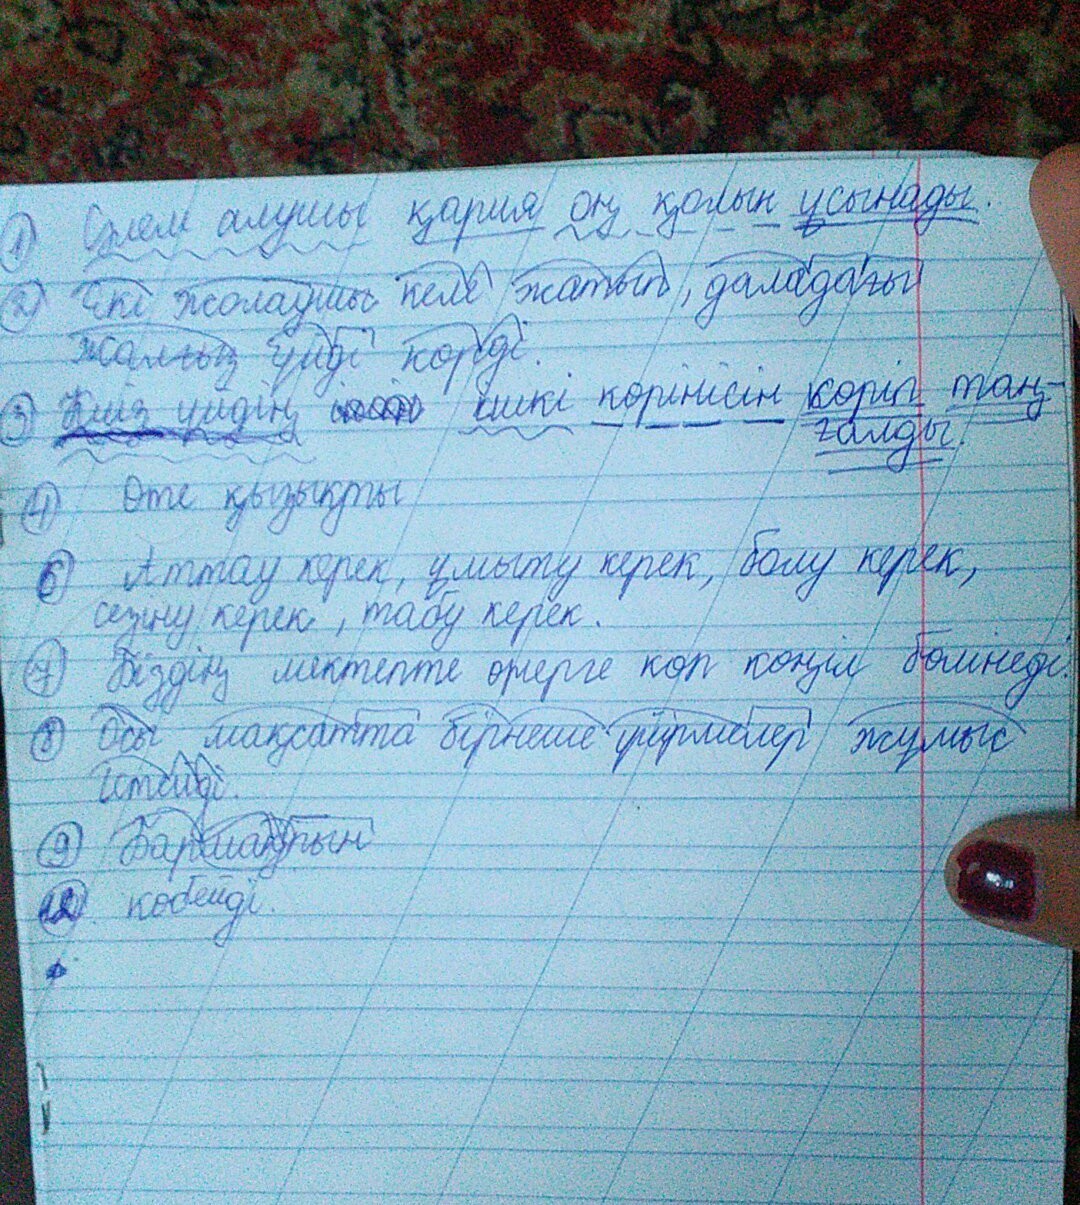 1 Сәлем алушы қария оң қолын ұсынады.
2 Екі жолаушы келе жатып, даладағы
жалғыз үйді көрді.
3 Киіз үйдің ішкі көрінісін көріп таң-
ғалды.
4 Өте қызықты
6 Аттау керек, ұмыту керек, болу керек,
сезіну керек, табу керек.
7 Біздің мектепте өнерге көп көңіл бөлінеді.
8 Осы мақсатта бірнеше үйірмелер жұмыс
істейді.
9 Бармақпын
12 көбейді.